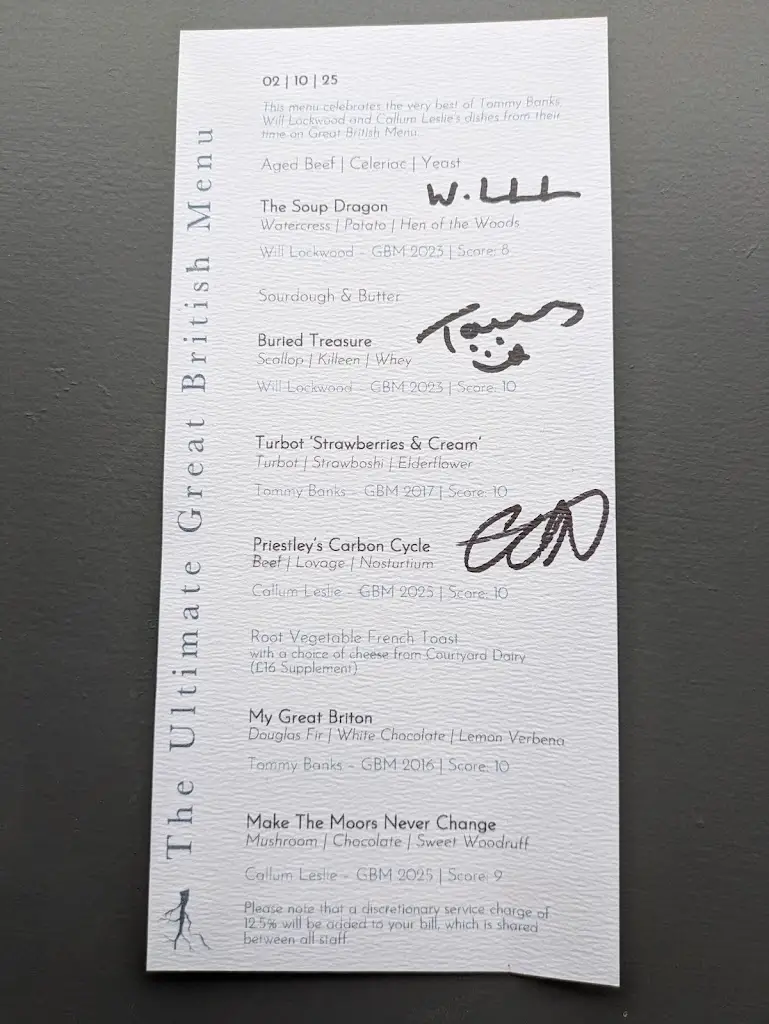 The Ultimate Great British Menu
02 | 10 | 25
This menu celebrates the very best of Tommy Banks,
Will Lockwood and Callum Leslie's dishes from their
time on Great British Menu.
Aged Beef | Celeriac | Yeast
W.LLL
The Soup Dragon
Watercress | Potato | Hen of the Woods
Will Lockwood - GBM 2023 | Score: 8
Sourdough & Butter
Buried Treasure
Scallop | Killeen | Whey
Will Lockwood - GBM 2023 | Score: 10
Turbot 'Strawberries & Cream'
Turbot | Strawboshi | Elderflower
Tommy Banks - GBM 2017 | Score: 10
Priestley's Carbon Cycle
Beef | Lovage | Nasturtium
Callum Leslie - GBM 2025 | Score: 10
Root Vegetable French Toast
with a choice of cheese from Courtyard Dairy
(£16 Supplement)
My Great Briton
Douglas Fir | White Chocolate | Lemon Verbena
Tommy Banks - GBM 2016 | Score: 10
Make The Moors Never Change
Mushroom | Chocolate | Sweet Woodruff
Callum Leslie - GBM 2025 | Score: 9
Please note that a discretionary service charge of
12.5% will be added to your bill, which is shared
between all staff.